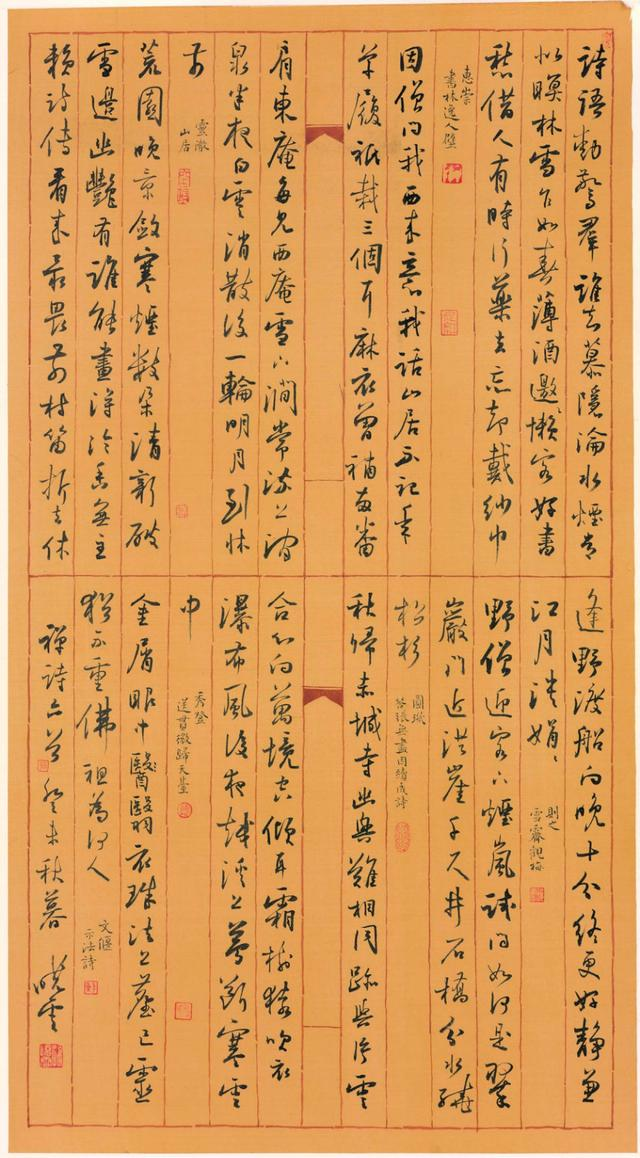 詩語動驚羣誰知慕隱淪水煙常
似暝林雪乍如春薄酒邀懶客好書
愁借人有時行藥去忘却戴紗巾
惠崇
書林逸人壁
因僧問我西來意我話山居不記年
草履祇栽三個耳麻衣曾補兩番
肩東庵每見西庵雪下澗常流上澗
泉半夜白雲消散後一輪明月到牀
前
靈澈
山居
荒園晚景斂寒煙數朵清新破
雪邊幽艷有誰能畫得冷香無主
賴詩傳看來最畏前村笛折去休
逢野渡船向晚十分終更好靜兼
江月淡娟娟
則之
雪霽觀梅
野僧迎客下煙嵐試問如何是翠
巖門近洪崖千尺井石橋分水繞
松杉
圓璣
答張無盡因續成詩
秋歸赤城寺幽興難相同跡與片雲
合心向萬境空傾耳霜樹猿吹衣
瀑布風後夜越溪上夢斷寒雲
中
秀登
送貫微歸天臺
金屑眼中翳衣珠法上塵己靈
猶不重佛祖為何人
文偃
示法詩
禪詩六首癸未秋暮曉雲